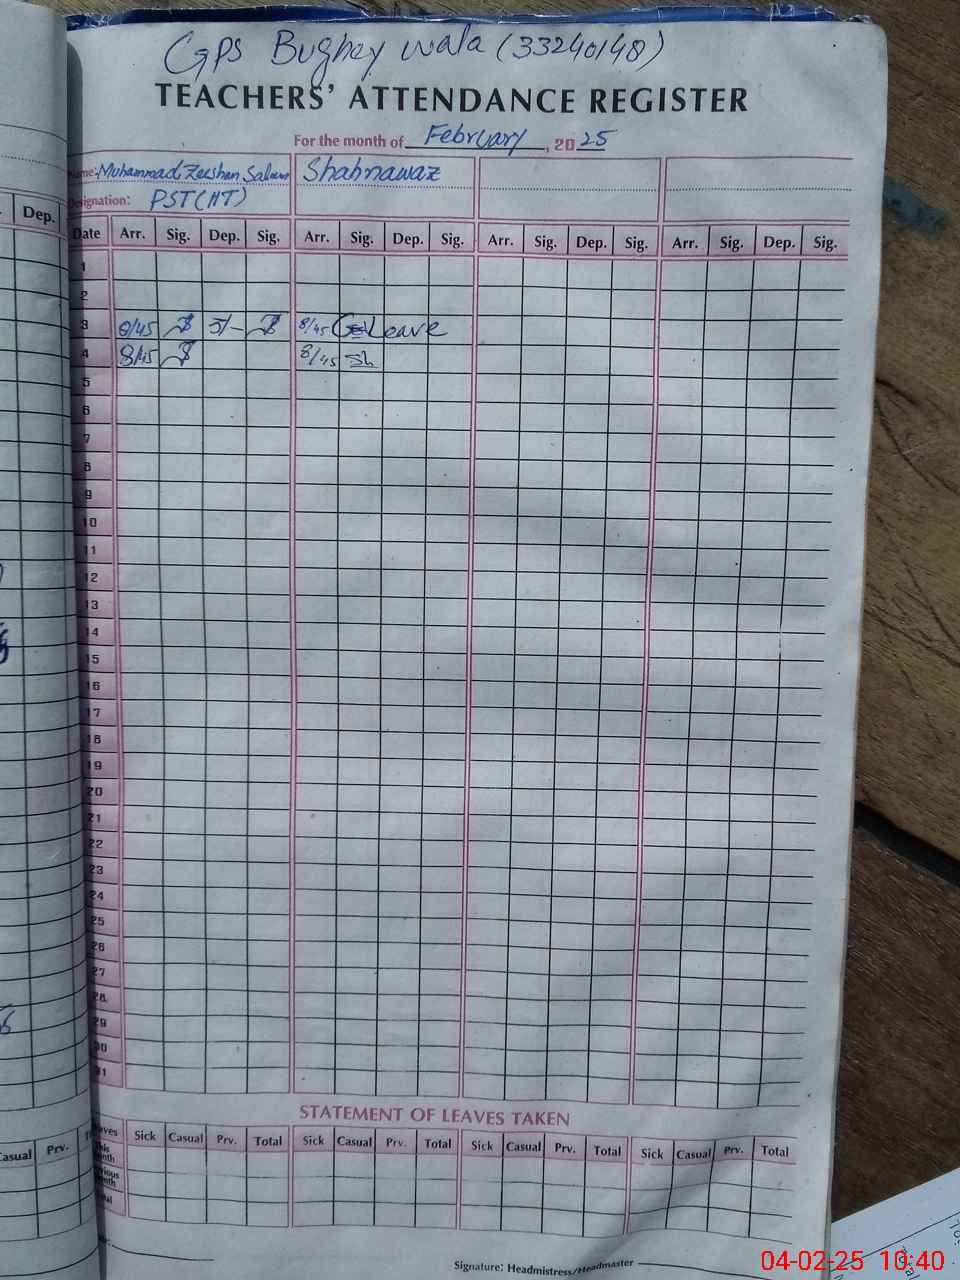 GPS Bughey wala (33240148)
TEACHERS' ATTENDANCE REGISTER
For the month of February, 2025
Name: Muhammad Zeeshan Saleem Shahnawaz
Designation: PST(HT)
Dep.
Date Arr. Sig. Dep. Sig. Arr. Sig. Dep. Sig. Arr. Sig. Dep. Sig. Arr. Sig. Dep. Sig.
1
2
3 8/45 8/45 Leave
4 8/45 8/45 Sh
5
6
7
8
9
10
11
12
13
14
15
16
17
18
19
20
21
22
23
24
25
26
27
28
29
30
31
STATEMENT OF LEAVES TAKEN
Casual Prv. Sick Casual Prv. Total Sick Casual Prv. Total Sick Casual Prv. Total Sick Casual Prv. Total
Signature: Headmistress/Headmaster
04-02-25 10:40